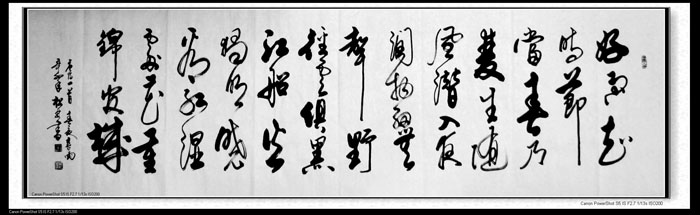 好雨知
时節
當春乃
發生隨
風潛入夜
潤物細無
聲野
徑雲俱黑
江船火
獨明曉
看紅濕
處花重
錦官城
春夜喜雨
Canon PowerShot S5 IS F2.7 1/13s ISO200
Canon PowerShot S5 IS F2.7 1/13s ISO200
Canon PowerShot S5 IS F2.7 1/13s ISO200